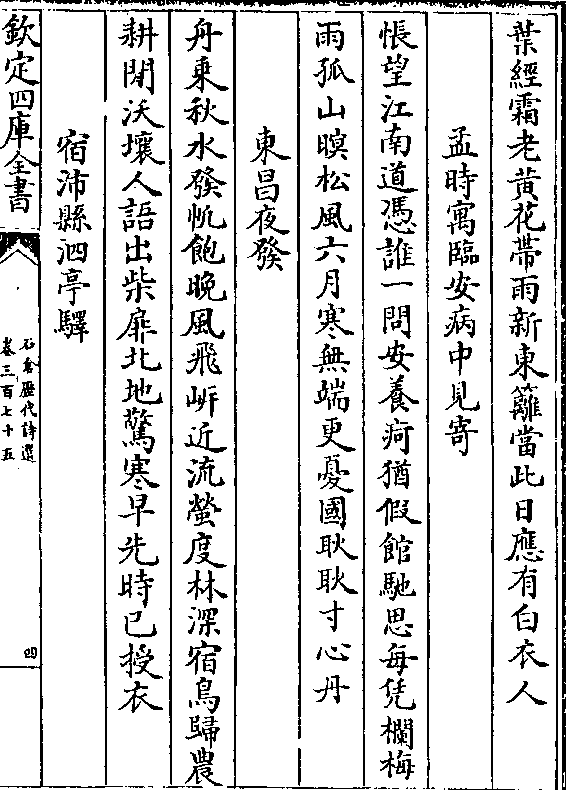 葉經霜老黄花帶雨新東籬當此日應有白衣人
孟時寓臨安病中見寄
悵望江南道憑誰一問安養疴猶假館馳思每凭欄梅
雨孤山暝松風六月寒無端更憂國耿耿寸心丹
東昌夜發
舟乗秋水發帆飽晚風飛岍近流螢度林深宿鳥歸農
耕閒沃壤人語出柴扉北地驚寒早先時已授衣
宿沛縣泗亭驛
欽定四庫全書
石倉歷代詩選
卷三百七十五
四